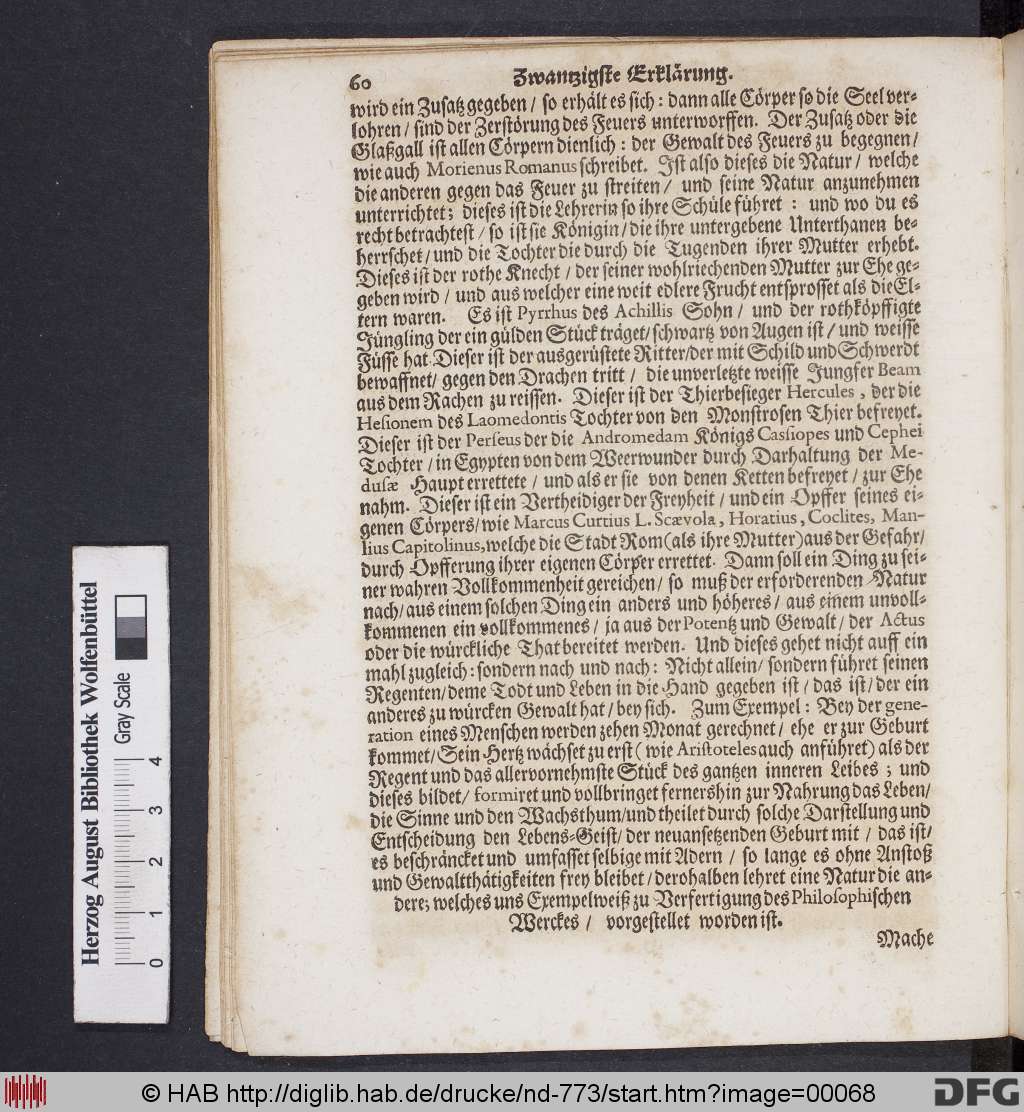 60 Zwantzigste Erklärung.
wird ein Zusatz gegeben / so erhält es sich: dann alle Cörper so die Seel ver-
lohren / sind der Zerstörung des Feuers unterworffen. Der Zusatz oder die
Glaßgall ist allen Cörpern dienlich: der Gewalt des Feuers zu begegnen /
wie auch Morienus Romanus schreibet. Ist also dieses die Natur / welche
die anderen gegen das Feuer zu streiten / und seine Natur anzunehmen
unterrichtet; dieses ist die Lehrerin so ihre Schüle führet: und wo du es
recht betrachtest / so ist sie Königin / die ihre untergebene Unterthanen be-
herrschet / und die Tochter die durch die Tugenden ihrer Mutter erhebt.
Dieses ist der rothe Knecht / der seiner wohlriechenden Mutter zur Ehe ge-
geben wird / und aus welcher eine weit edlere Frucht entsprosset als die El-
tern waren. Es ist Pyrrhus des Achillis Sohn / und der rothköpffigte
Jüngling der ein gülden Stück träget / schwartz von Augen ist / und weisse
Füsse hat. Dieser ist der ausgerüstete Ritter / der mit Schild und Schwerdt
bewaffnet / gegen den Drachen tritt / die unverletzte weisse Jungfer Beam
aus dem Rachen zu reissen. Dieser ist der Thierbesieger Hercules, der die
Hesionem des Laomedontis Tochter von den Monstrosen Thier befreyet.
Dieser ist der Perseus der die Andromedam Königs Cassiopes und Cephei
Tochter / in Egypten von dem Meerwunder durch Darhaltung der Me-
dusæ Haupt errettete / und als er sie von denen Ketten befreyet / zur Ehe
nahm. Dieser ist ein Vertheidiger der Freyheit / und ein Opffer seines ei-
genen Cörpers / wie Marcus Curtius L. Scævola, Horatius, Coclites, Man-
lius Capitolinus, welche die Stadt Rom (als ihre Mutter) aus der Gefahr /
durch Opfferung ihrer eigenen Cörper errettet. Dann soll ein Ding zu sei-
ner wahren Vollkommenheit gereichen / so muß der erforderenden Natur
nach / aus einem solchen Ding ein anders und höheres / aus einem unvoll-
kommenen ein vollkommenes / ja aus der Potentz und Gewalt / der Actus
oder die würckliche That bereitet werden. Und dieses gehet nicht auff ein
mahl zugleich: sondern nach und nach: Nicht allein / sondern führet seinen
Regenten / deme Todt und Leben in die Hand gegeben ist / das ist / der ein
anderes zu würcken Gewalt hat / bey sich. Zum Exempel: Bey der gene-
ration eines Menschen werden zehen Monat gerechnet / ehe er zur Geburt
kommet / Sein Hertz wächset zu erst (wie Aristoteles auch anführet) als der
Regent und das allervornehmste Stück des gantzen inneren Leibes; und
dieses bildet / formiret und vollbringet fernershin zur Nahrung das Leben /
die Sinne und den Wachsthum / und theilet durch solche Darstellung und
Entscheidung den Lebens-Geist / der neuansetzenden Geburt mit / das ist /
es beschräncket und umfasset selbige mit Adern / so lange es ohne Anstoß
und Gewaltthätigkeiten frey bleibet / derohalben lehret eine Natur die an-
dere; welches uns Exempelweiß zu Verfertigung des Philosophischen
Werckes / vorgestellet worden ist.
Mache
Herzog August Bibliothek Wolfenbüttel
Gray Scale
0 1 2 3 4
© HAB http://diglib.hab.de/drucke/nd-773/start.htm?image=00068
DFG